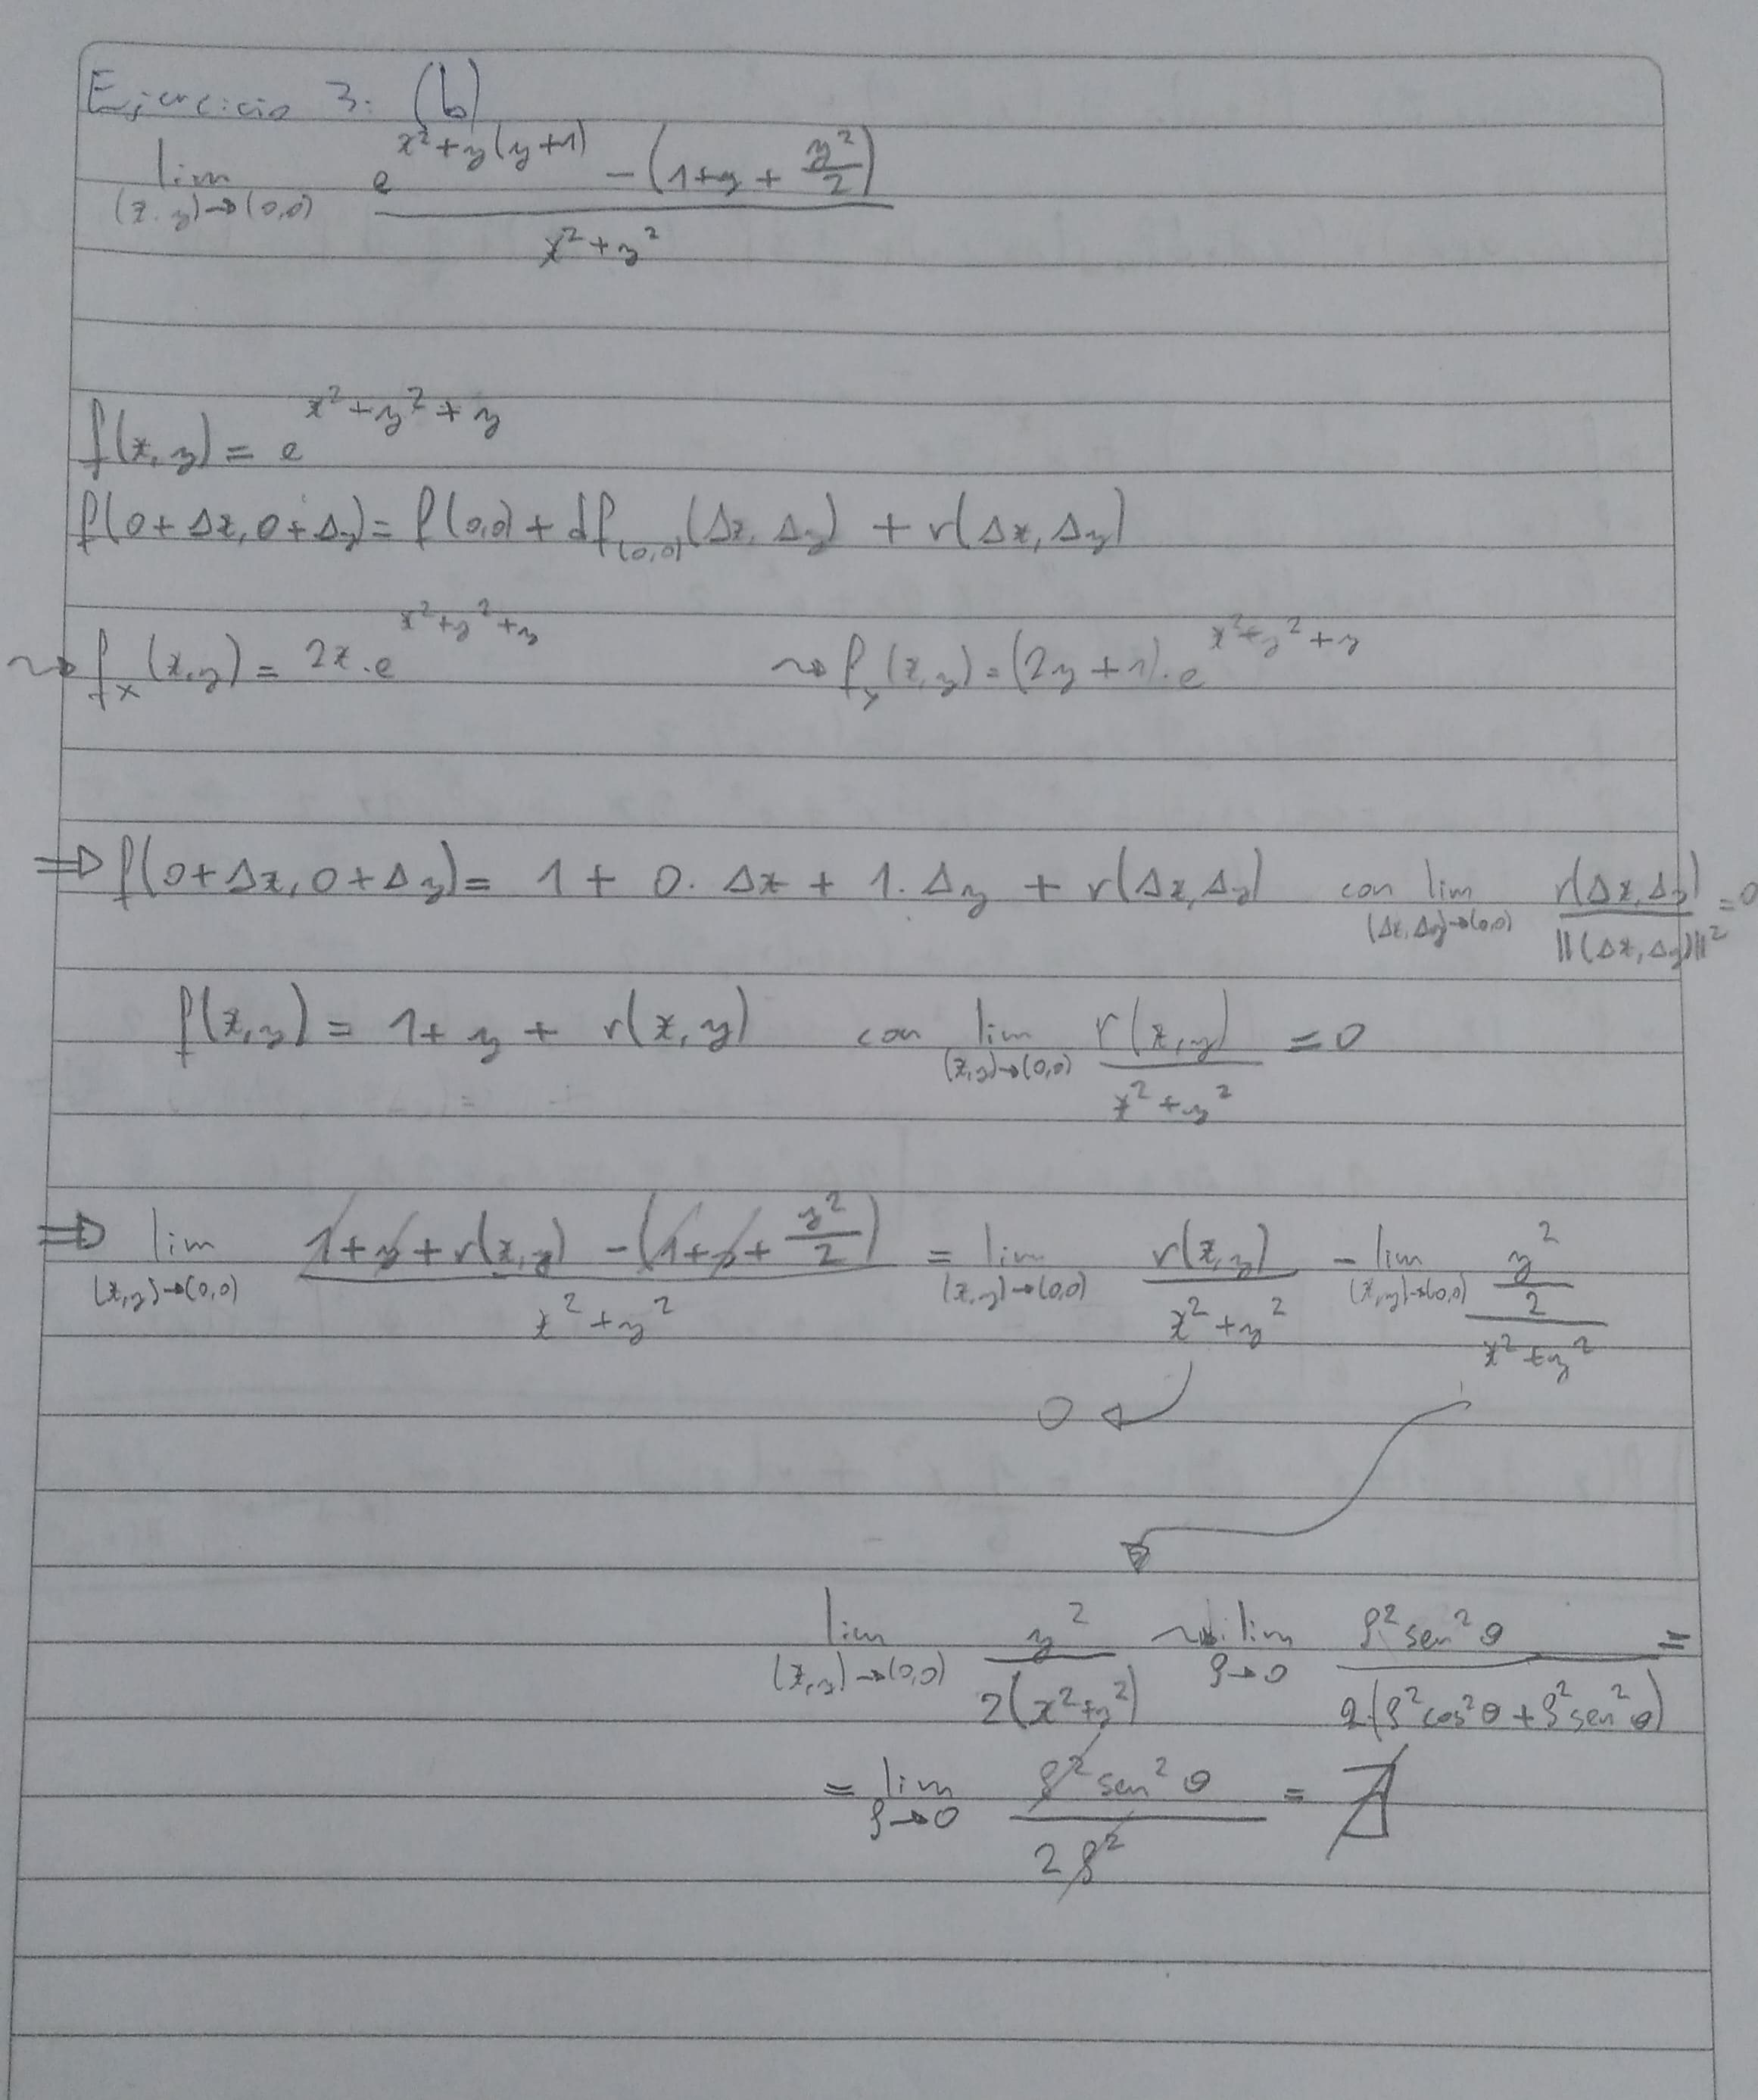 Ejercicio 3: (b)
lim_{(x,y)→(0,0)} \frac{e^{x²+y(y+1)} - (1+y+\frac{y²}{2})}{x²+y²}
f(x,y) = e^{x²+y²+y}
f(0+Δx, 0+Δy) = f(0,0) + df_{(0,0)}(Δx, Δy) + r(Δx, Δy)
⇝ f_x(x,y) = 2x·e^{x²+y²+y} ⇝ f_y(x,y) = (2y+1)·e^{x²+y²+y}
⇒ f(0+Δx, 0+Δy) = 1 + 0·Δx + 1·Δy + r(Δx, Δy) con lim_{(Δx,Δy)→(0,0)} \frac{r(Δx, Δy)}{||(Δx, Δy)||²} = 0
f(x,y) = 1 + y + r(x,y) con lim_{(x,y)→(0,0)} \frac{r(x,y)}{x²+y²} = 0
⇒ lim_{(x,y)→(0,0)} \frac{1+y+r(x,y) - (1+y+\frac{y²}{2})}{x²+y²} = lim_{(x,y)→(0,0)} \frac{r(x,y)}{x²+y²} - lim_{(x,y)→(0,0)} \frac{\frac{y²}{2}}{x²+y²}
0
lim_{(x,y)→(0,0)} \frac{y²}{2(x²+y²)} ⇝ lim_{ρ→0} \frac{ρ² sen²θ}{2(ρ² cos²θ + ρ² sen²θ)} =
= lim_{ρ→0} \frac{ρ² sen²θ}{2ρ²} = ∄